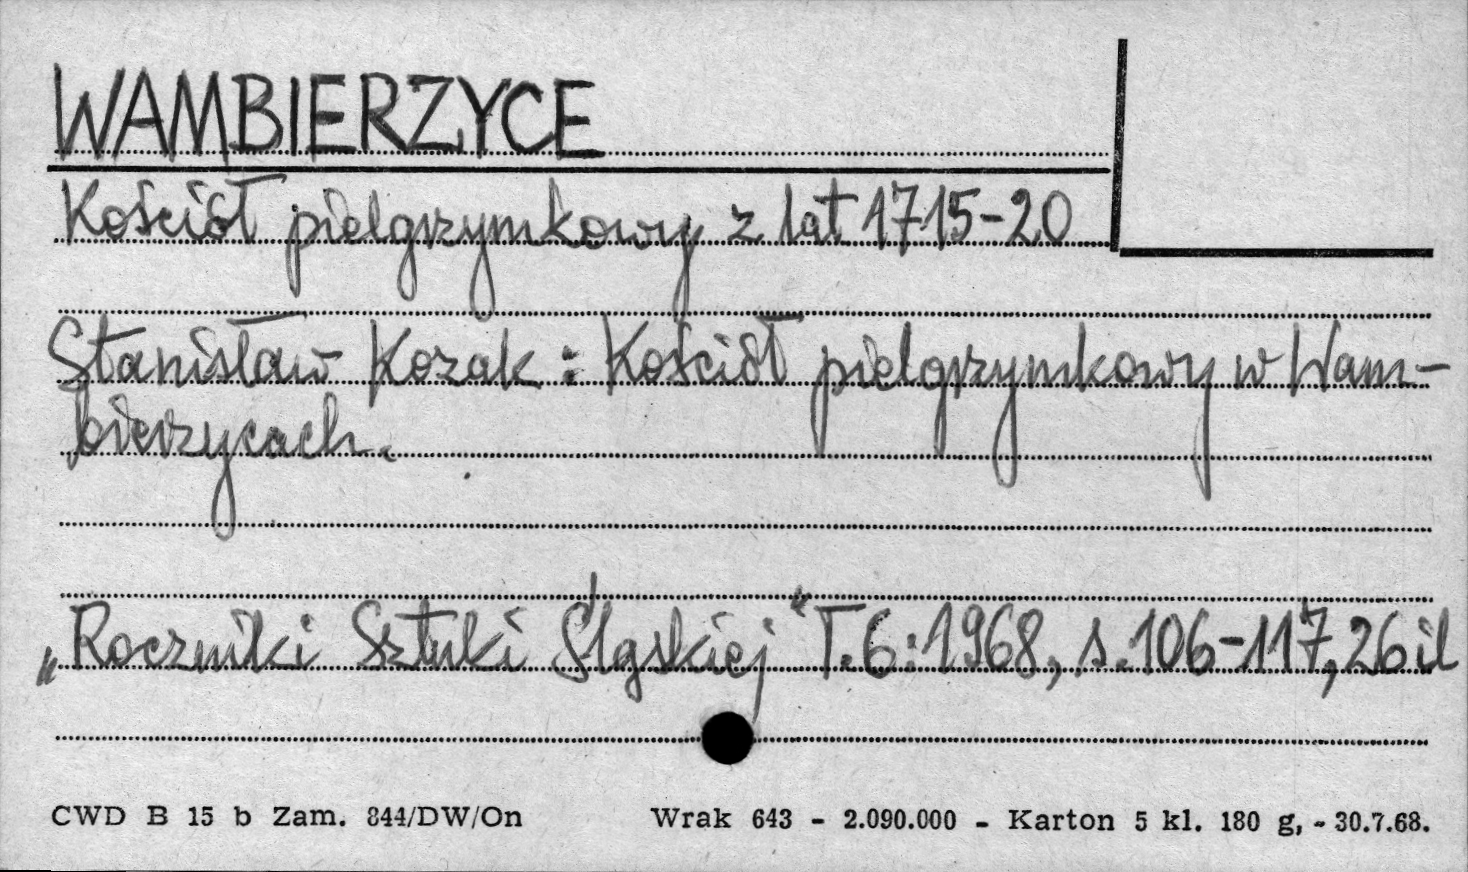 WAMBIERZYCE
Kościół pielgrzymkowy z lat 1715-20
Stanisław Kozak : Kościół pielgrzymkowy w Wam-
bierzycach.
„Roczniki Sztuki Śląskiej" T.6:1968, s.106-117, 26 il
CWD B 15 b Zam. 844/DW/On Wrak 643 - 2.090.000 - Karton 5 kl. 180 g, - 30.7.68.